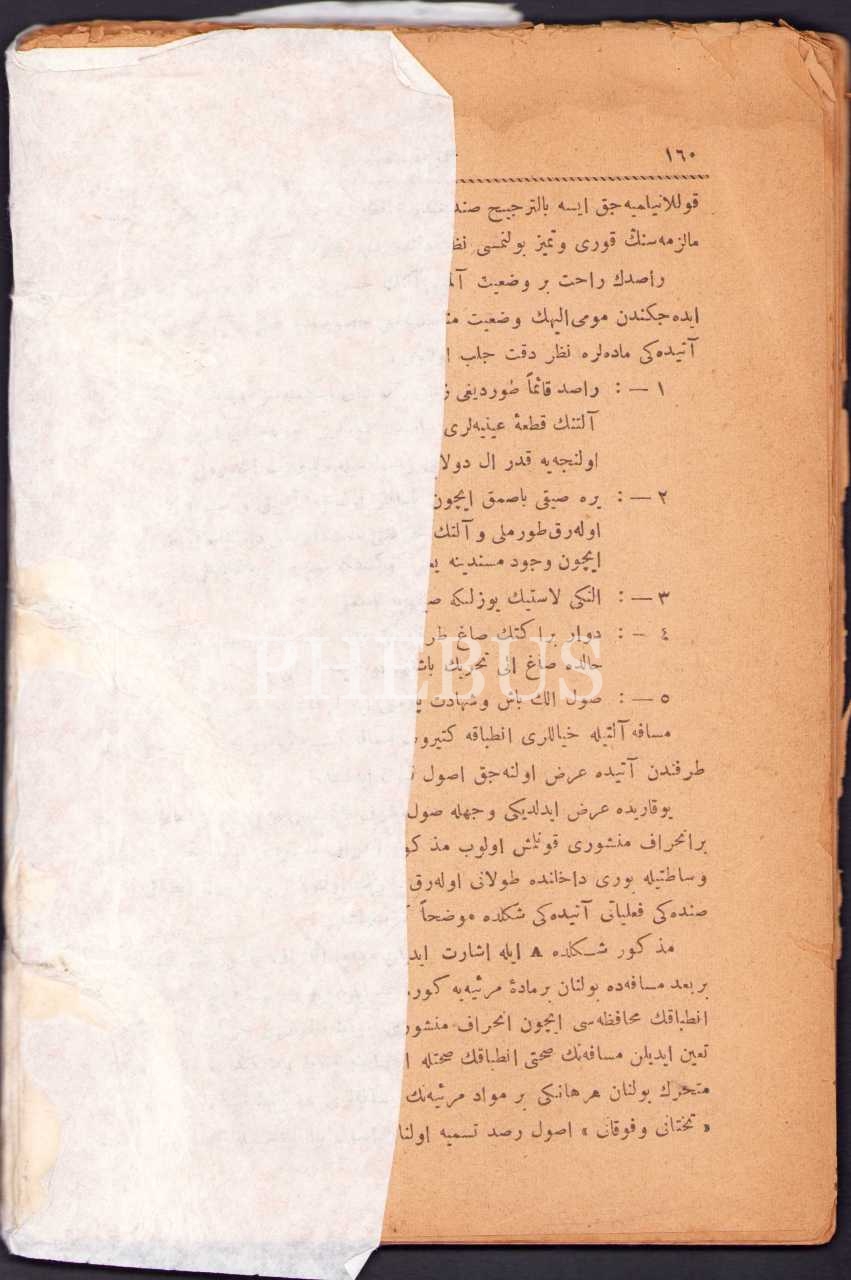 ١٦٠
قوللانیلمیه‌جق ایسه بالترجیح
مالزمه‌سنڭ قوری وتمیز بولنمسی
راصدك راحت بر وضعیت
ایده‌جکندن مومی‌الیهك وضعیت
آتیده‌کی ماده‌لره نظر دقت جلب
١ — : راصد قائماً طوردیغی
آلتنك قطعهٔ عینیه‌لری
اولنجه‌یه قدر ال
٢ — : یره صیقی باصمق ایچون
اوله‌رق طورملی و آلتك
ایچون وجود مسندینه
٣ — : النکی لاستیك یوزلکه
٤ — : دوار براکتك صاغ
حالده صاغ الی تحریك
PHEBUS
٥ — : صول الك باش وشهادت
مسافه آلتیله خیاللری انطباقه
طرفندن آتیده عرض اولنه‌جق اصول
یوقاریده عرض ایدلدیکی وجهله صول
برانحراف منشوری قونلمش اولوب
وساطتیله بوری داخلنده طولانی اوله‌رق
صنده‌کی فعلیاتی آتیده‌کی شکلده موضحاً
مذکور شکلده A ایله اشارت
بر بعد مسافه‌ده بولنان برمادهٔ مرئیه‌یه
انطباقك محافظه‌سی ایچون انحراف منشوری
تعین ایدیلن مسافه‌نك صحتی انطباقك صحتله
متحرك بولنان هرهانکی بر مواد مرئیه‌نك
« تحتانی وفوقانی » اصول رصد تسمیه